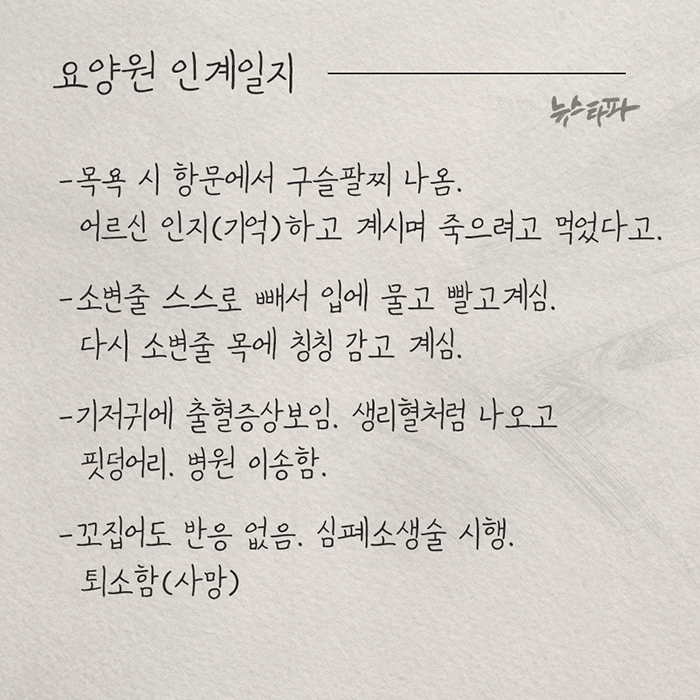 요양원 인계일지
뉴스타파
-목욕 시 항문에서 구슬팔찌 나옴.
어르신 인지(기억)하고 계시며 죽으려고 먹었다고.
-소변줄 스스로 빼서 입에 물고 빨고계심.
다시 소변줄 목에 칭칭 감고 계심.
-기저귀에 출혈증상보임. 생리혈처럼 나오고
핏덩어리. 병원 이송함.
-꼬집어도 반응 없음. 심폐소생술 시행.
퇴소함(사망)